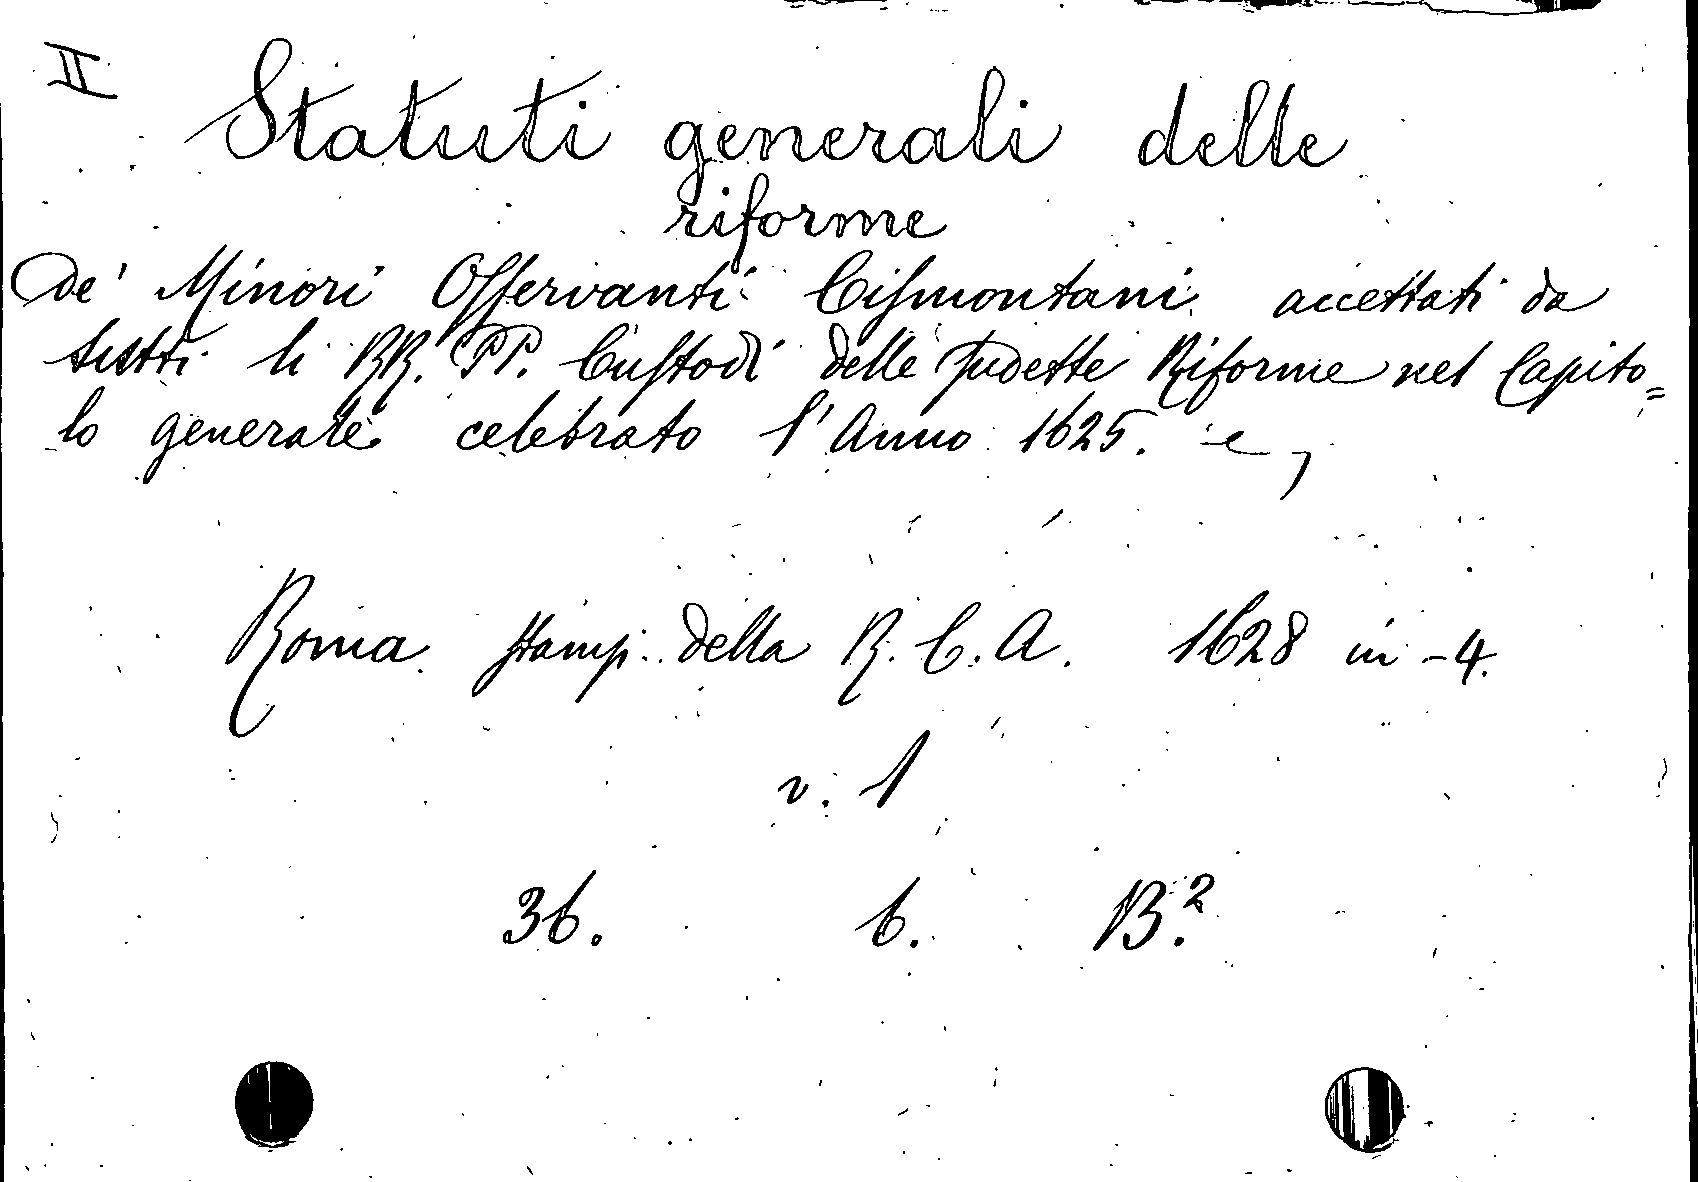 II
Statuti generali delle
riforme
de' Minori Osservanti Cismontani accettati da
tutti li RR. PP. Custodi delle sudette Riforme nel Capito=
lo generale celebrato l'Anno 1625.
Roma stamp. della R. C. A. 1628 in -4.
v. 1
36. 6. B.²